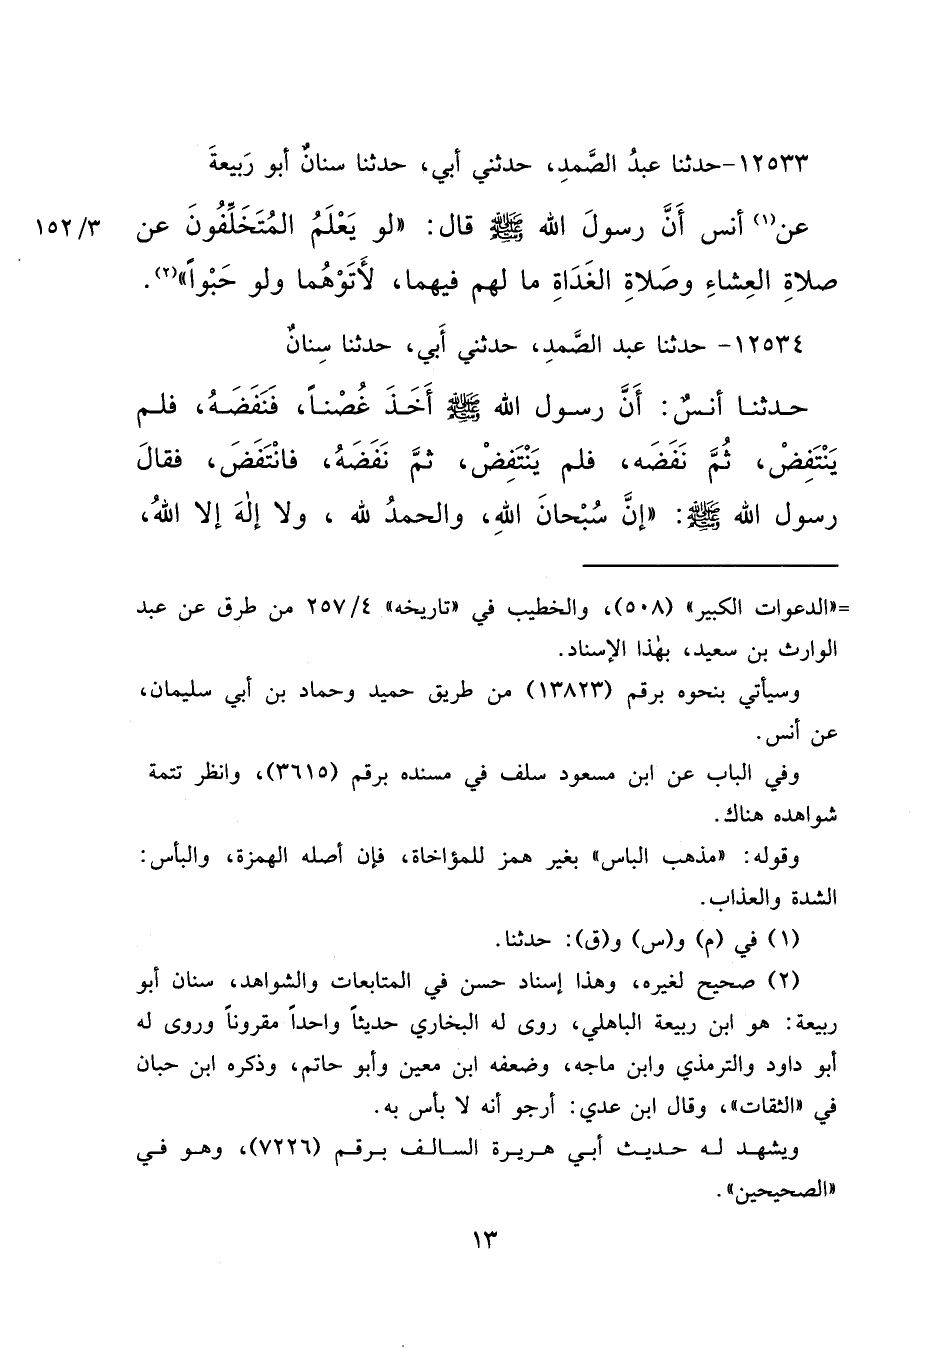 ١٢٥٣٣-حدثنا عبدُ الصَّمدِ، حدثني أبي، حدثنا سنانٌ أبو رَبيعةَ
عن(١) أنس أَنَّ رسولَ الله ﷺ قال: «لو يَعْلَمُ المُتَخَلِّفُونَ عن ١٥٢/٣
صلاةِ العِشاءِ وصَلاةِ الغَدَاةِ ما لهم فيهما، لأَتَوْهُما ولو حَبْواً»(٢).
١٢٥٣٤- حدثنا عبد الصَّمدِ، حدثني أَبي، حدثنا سِنانٌ
حدثنا أنسٌ: أَنَّ رسول الله ﷺ أَخَذَ غُصْناً، فَنَفَضَهُ، فلم
يَنْتَفِضْ، ثُمَّ نَفَضَه، فلم يَنْتَفِضْ، ثمَّ نَفَضَهُ، فانْتَفَضَ، فقالَ
رسول الله ﷺ: «إنَّ سُبْحانَ اللهِ، والحمدُ لله ، ولا إلٰهَ إلا اللهُ،
=«الدعوات الكبير» (٥٠٨)، والخطيب في «تاريخه» ٢٥٧/٤ من طرق عن عبد
الوارث بن سعيد، بهٰذا الإسناد.
وسيأتي بنحوه برقم (١٣٨٢٣) من طريق حميد وحماد بن أبي سليمان،
عن أنس.
وفي الباب عن ابن مسعود سلف في مسنده برقم (٣٦١٥)، وانظر تتمة
شواهده هناك.
وقوله: «مذهب الباس» بغير همز للمؤاخاة، فإن أصله الهمزة، والبأس:
الشدة والعذاب.
(١) في (م) و(س) و(ق): حدثنا.
(٢) صحيح لغيره، وهذا إسناد حسن في المتابعات والشواهد، سنان أبو
ربيعة: هو ابن ربيعة الباهلي، روى له البخاري حديثاً واحداً مقروناً وروى له
أبو داود والترمذي وابن ماجه، وضعفه ابن معين وأبو حاتم، وذكره ابن حبان
في «الثقات»، وقال ابن عدي: أرجو أنه لا بأس به.
ويشهد له حديث أبي هريرة السالف برقم (٧٢٢٦)، وهو في
«الصحيحين».
١٣